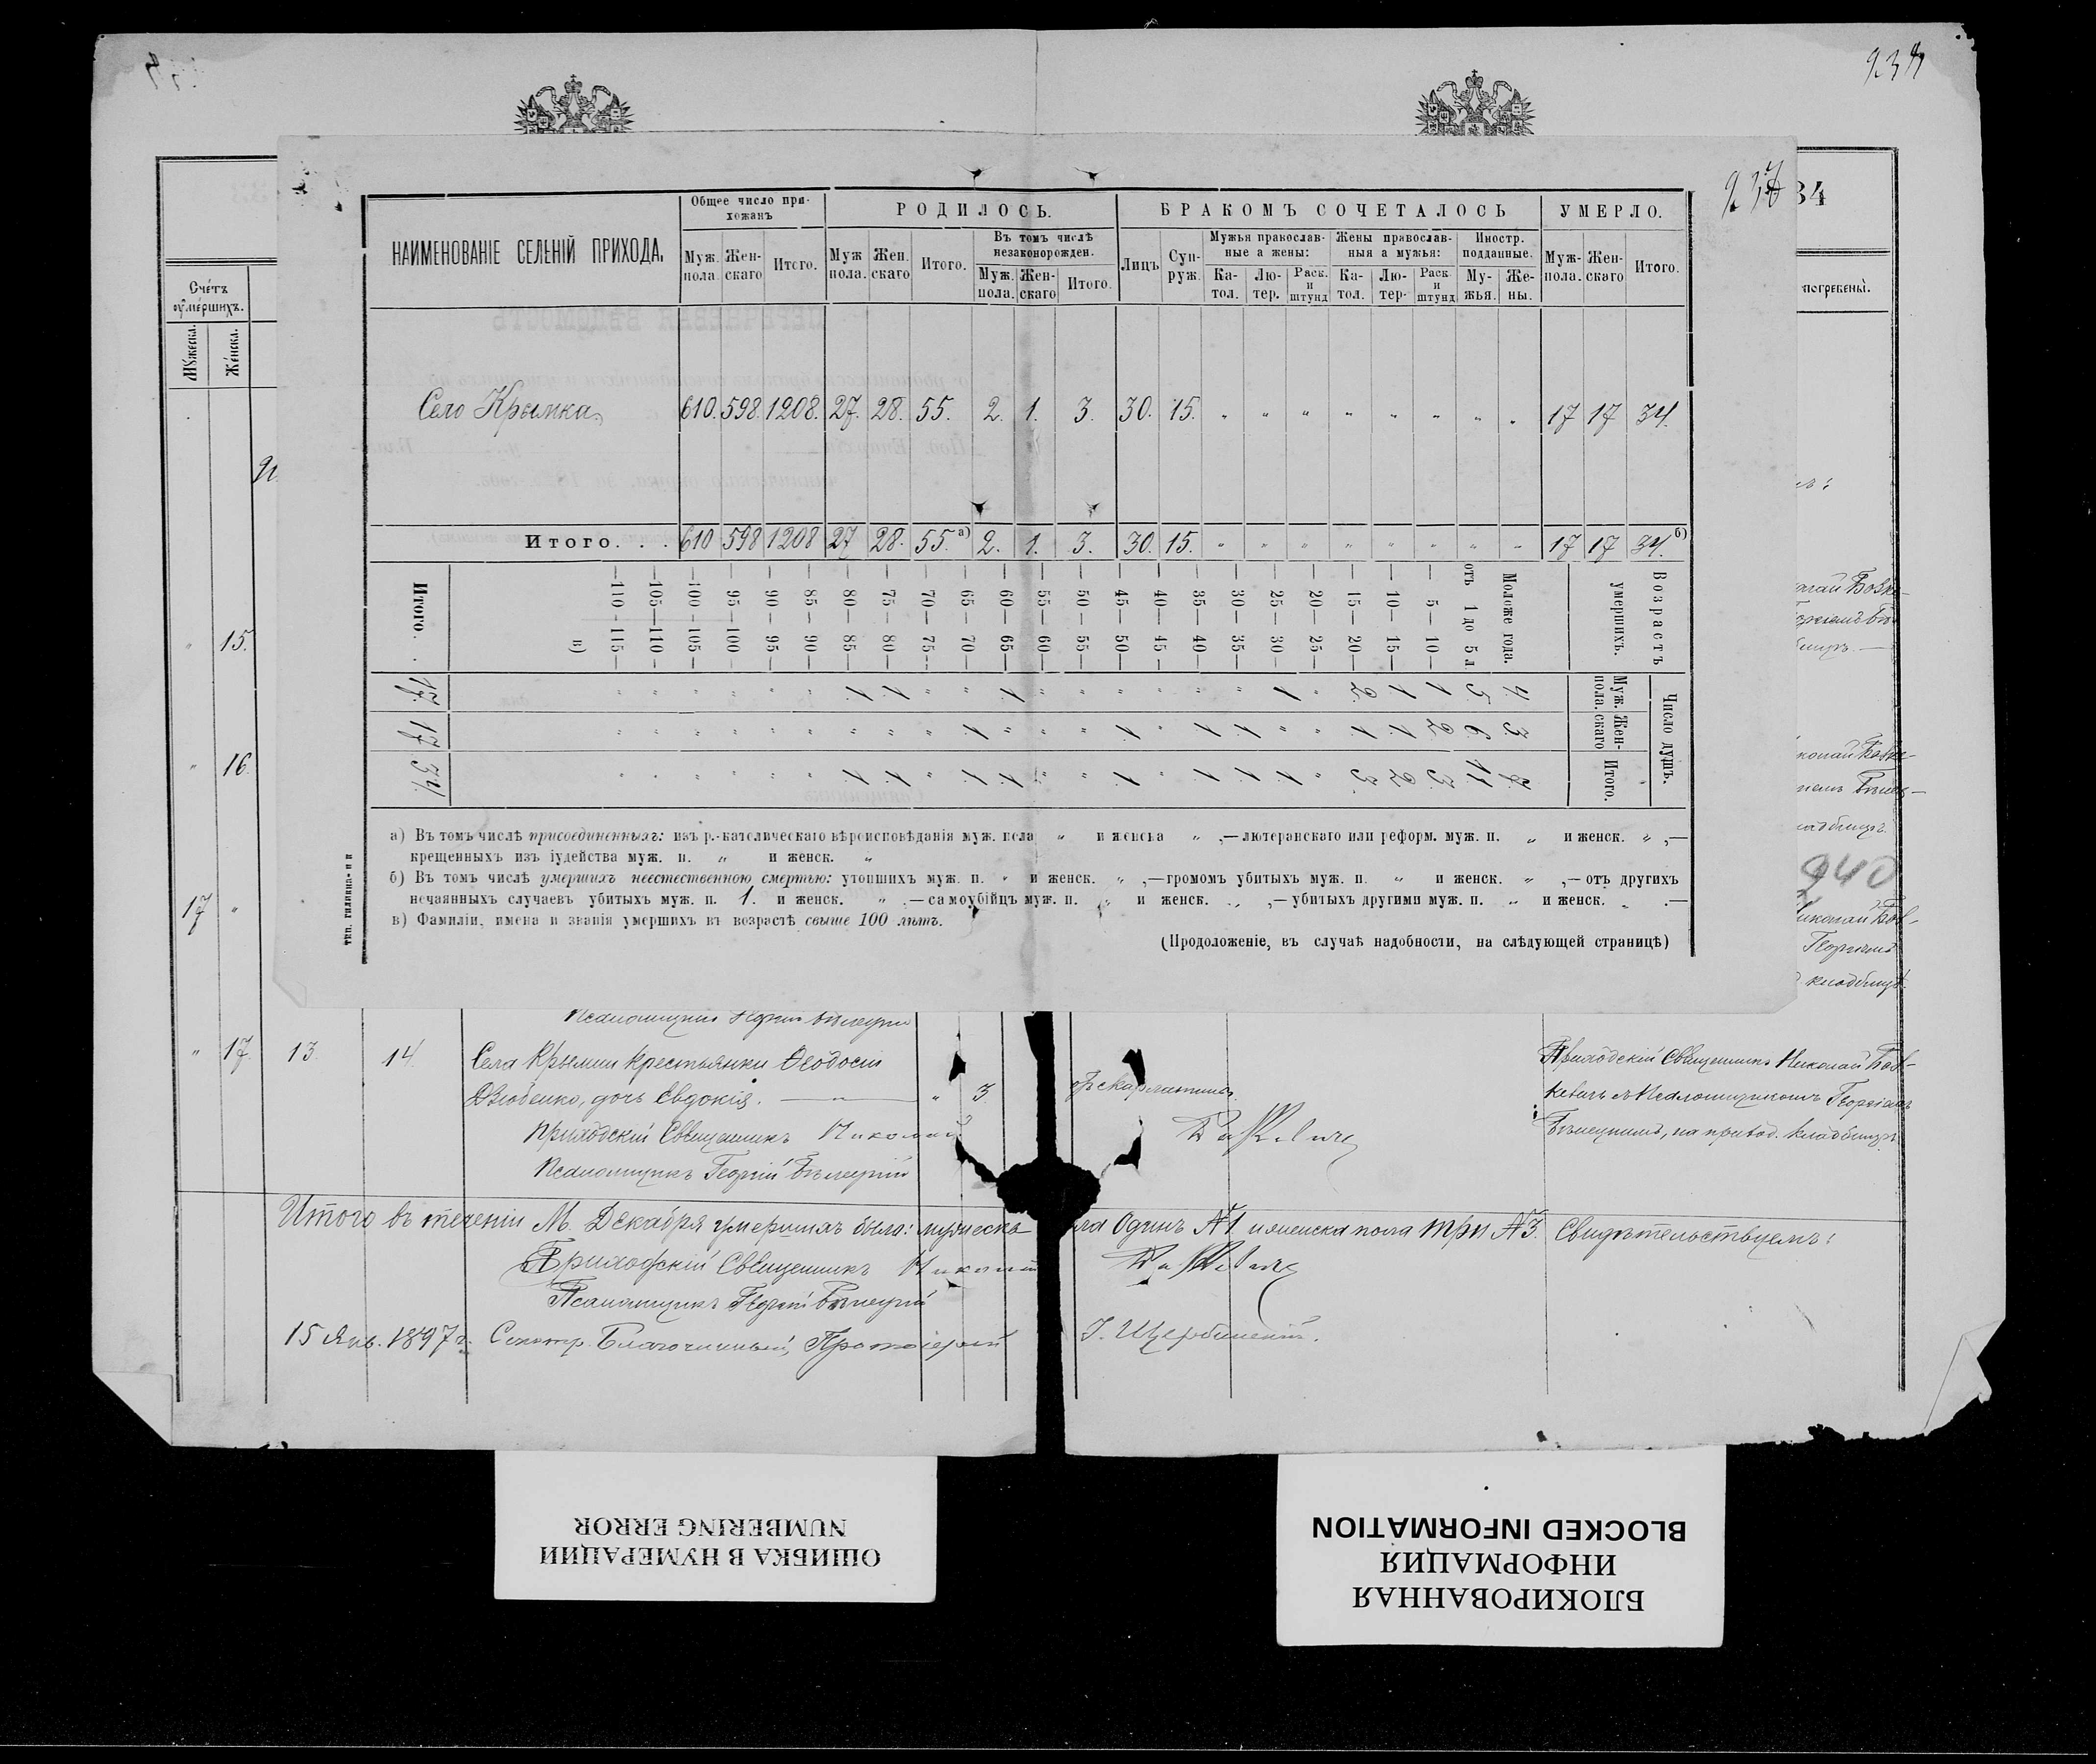 934
НАИМЕНОВАНІЕ СЕЛЕНІЙ ПРИХОДА.
Общее число при-
хожанъ
Муж. пола. Жен- скаго Итого.
РОДИЛОСЬ.
Муж пола. Жен. скаго Итого.
Въ томъ числѣ
незаконорожден.
Муж. пола. Жен- скаго Итого.
БРАКОМЪ СОЧЕТАЛОСЬ
Лицъ Суп- руж.
Мужья православ-
ные а жены:
Ка- тол. Лю- тер. Раск. и штунд
Жены православ-
ныя а мужья:
Ка- тол. Лю- тер- Раск. и штунд
Иностр.
подданные.
Му- жья. Же- ны.
УМЕРЛО.
Муж- пола. Жен- скаго Итого.
34
Счётъ
оумершихъ.
Мужеска. Женска.
погребены.
Село Крымка. 610. 598. 1208. 27. 28. 55. 2. 1. 3. 30. 15. „ „ „ „ „ „ „ „ 17 17 34.
Итого. . . 610 598 1208 27 28. 55. а) 2. 1. 3. 30. 15. „ „ „ „ „ „ „ „ 17 17 34. б)
Возрастъ умершихъ.
Число душъ.
Муж. пола. Жен- скаго Итого.
Моложе года. 4. 3 7.
отъ 1 до 5 л 5. 6. 11.
— 5 — 10 — 1 2. 3.
— 10 — 15 — 1 1 2.
— 15 — 20 — 2. 1 3
— 20 — 25 — „ „ „
— 25 — 30 — 1 „ 1
— 30 — 35 — „ 1 1
— 35 — 40 — „ 1 1
— 40 — 45 — „ „ „
— 45 — 50 — „ 1 1
— 50 — 55 — „ „ „
— 55 — 60 — „ „ „
— 60 — 65 — 1 „ 1
— 65 — 70 — „ 1 1
— 70 — 75 — „ „ „
— 75 — 80 — 1 „ 1
— 80 — 85 — 1 „ 1
— 85 — 90 — „ „ „
— 90 — 95 — „ „ „
— 95 — 100 — „ „ „
— 100 — 105 — „ „ „
— 105 — 110 — „ „ „
— 110 — 115 — „ „ „
в)
Итого. . 17. 17 34.
а) Въ томъ числѣ присоединенныхъ: изъ р.-католическаго вѣроисповѣданія муж. пола „ и женска „ ,—лютеранскаго или реформ. муж. п. „ и женск. „ ,—
крещенныхъ изъ іудейства муж. п. „ и женск. „
б) Въ томъ числѣ умершихъ неестественною смертью: утопшихъ муж. п. „ и женск. „ ,—громомъ убитыхъ муж. п. „ и женск. „ ,—отъ другихъ
нечаянныхъ случаевъ убитыхъ муж. п. 1. и женск. „ .—самоубійцъ муж. п. „ и женск. „ ,—убитыхъ другими муж. п. „ и женск. „ .—
в) Фамиліи, имена и званія умершихъ въ возрастѣ свыше 100 лѣтъ.
(Продолженіе, въ случаѣ надобности, на слѣдующей страницѣ)
„ 15.
„ 16.
940
17 „
Георгіемъ
кладбищѣ.
Псаломщикъ Георгій Бѣлецкій
„ 17. 13. 14. Села Крымки крестьянки Ѳеодосіи
дочь Евдокія. „ 3
отъ скарлатины.
Приходскій Священникъ Николай
Псаломщикъ Георгій Бѣлецкій
Приходскій Священникъ Николай
съ Псаломщикомъ Георгіемъ
Бѣлецкимъ, на приход. кладбищѣ.
Итого въ теченіи М. Декабря умершихъ было: мужеска пола Одинъ №1 и женска пола три №3. Свидѣтельствуемъ:
Приходскій Священникъ Николай
Псаломщикъ Георгій Бѣлецкій
15 Янв. 1897 г. Смотр. Благочинный, Протоіерей І. Щербинскій.
NUMBERING ERROR
ОШИБКА В НУМЕРАЦИИ
BLOCKED INFORMATION
ИНФОРМАЦИЯ
БЛОКИРОВАННАЯ